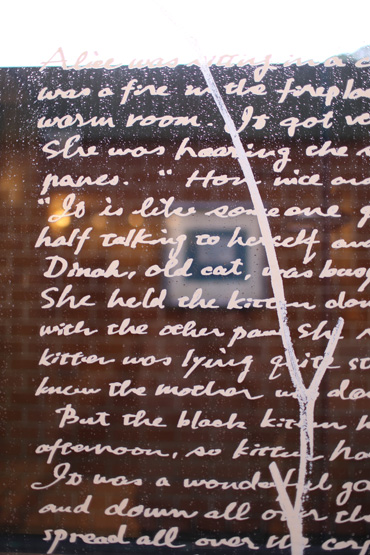 Alice was sitting in a c
was a fire in the firepla
warm room. It got ve
She was hearing the s
panes. " How nice an
"It is like someone
half talking to herself and
Dinah, old cat, was busy
She held the kitten dow
with the other paw She
kitten was lying quite st
knew the mother
But the black kitten h
afternoon, so kitten ha
It was a wonderful go
and down all over the
spread all over the